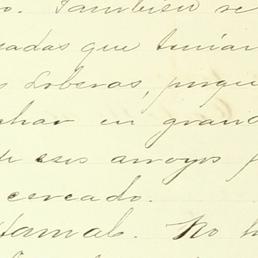 o. Tambien se
eadas que tenian
s Loberas, porque
char en grand
e esos arroyos p
cercado.
Hamals. No h